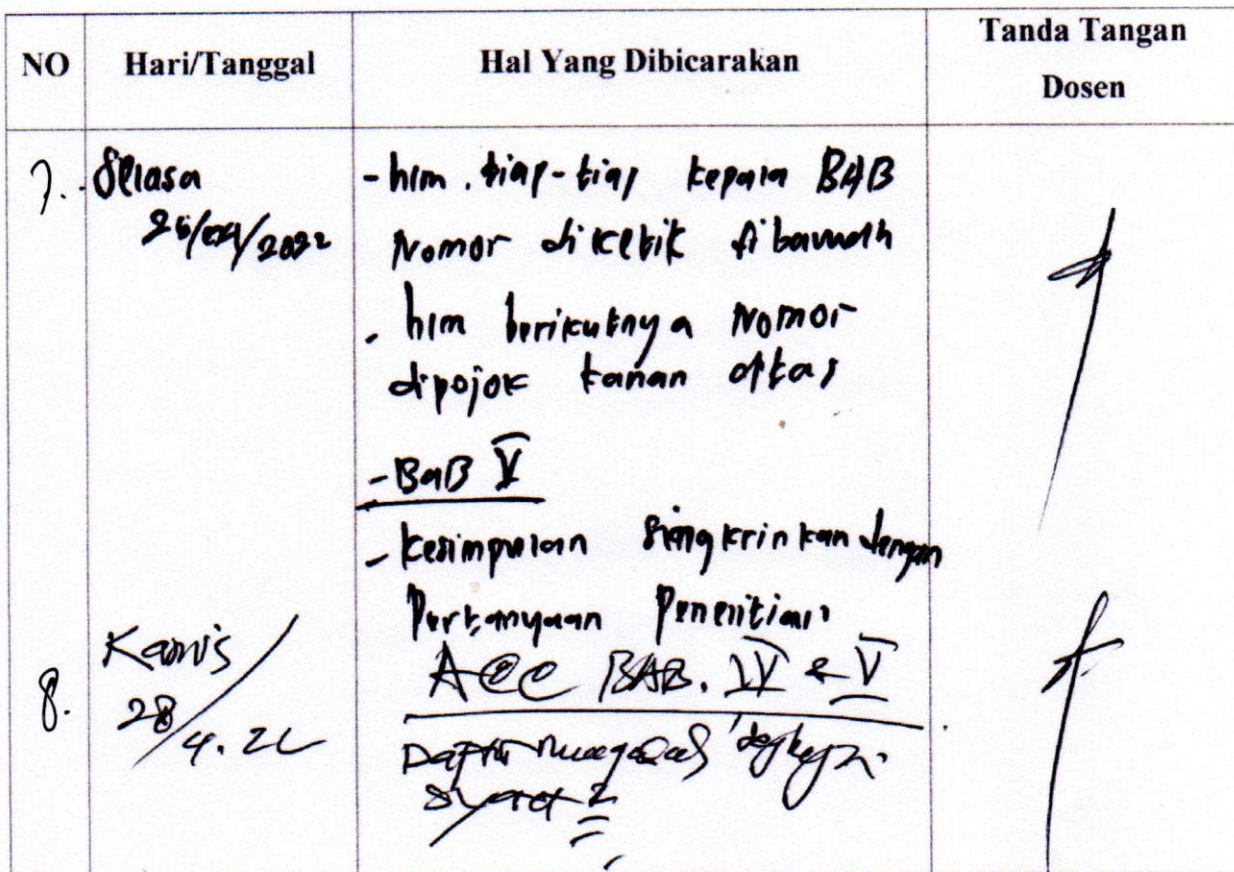 NO Hari/Tanggal Hal Yang Dibicarakan Tanda Tangan Dosen
7. Selasa - hlm. tiap-tiap kepala BAB
26/04/2022 Nomor diketik dibawah
- hlm berikutnya Nomor
dipojok kanan atas
- BAB V
- kesimpulan singkrinkan dengan
Pertanyaan Penelitian
8. Kamis ACC BAB. IV & V
28/4.22 Daftar munaqasah
syarat 2